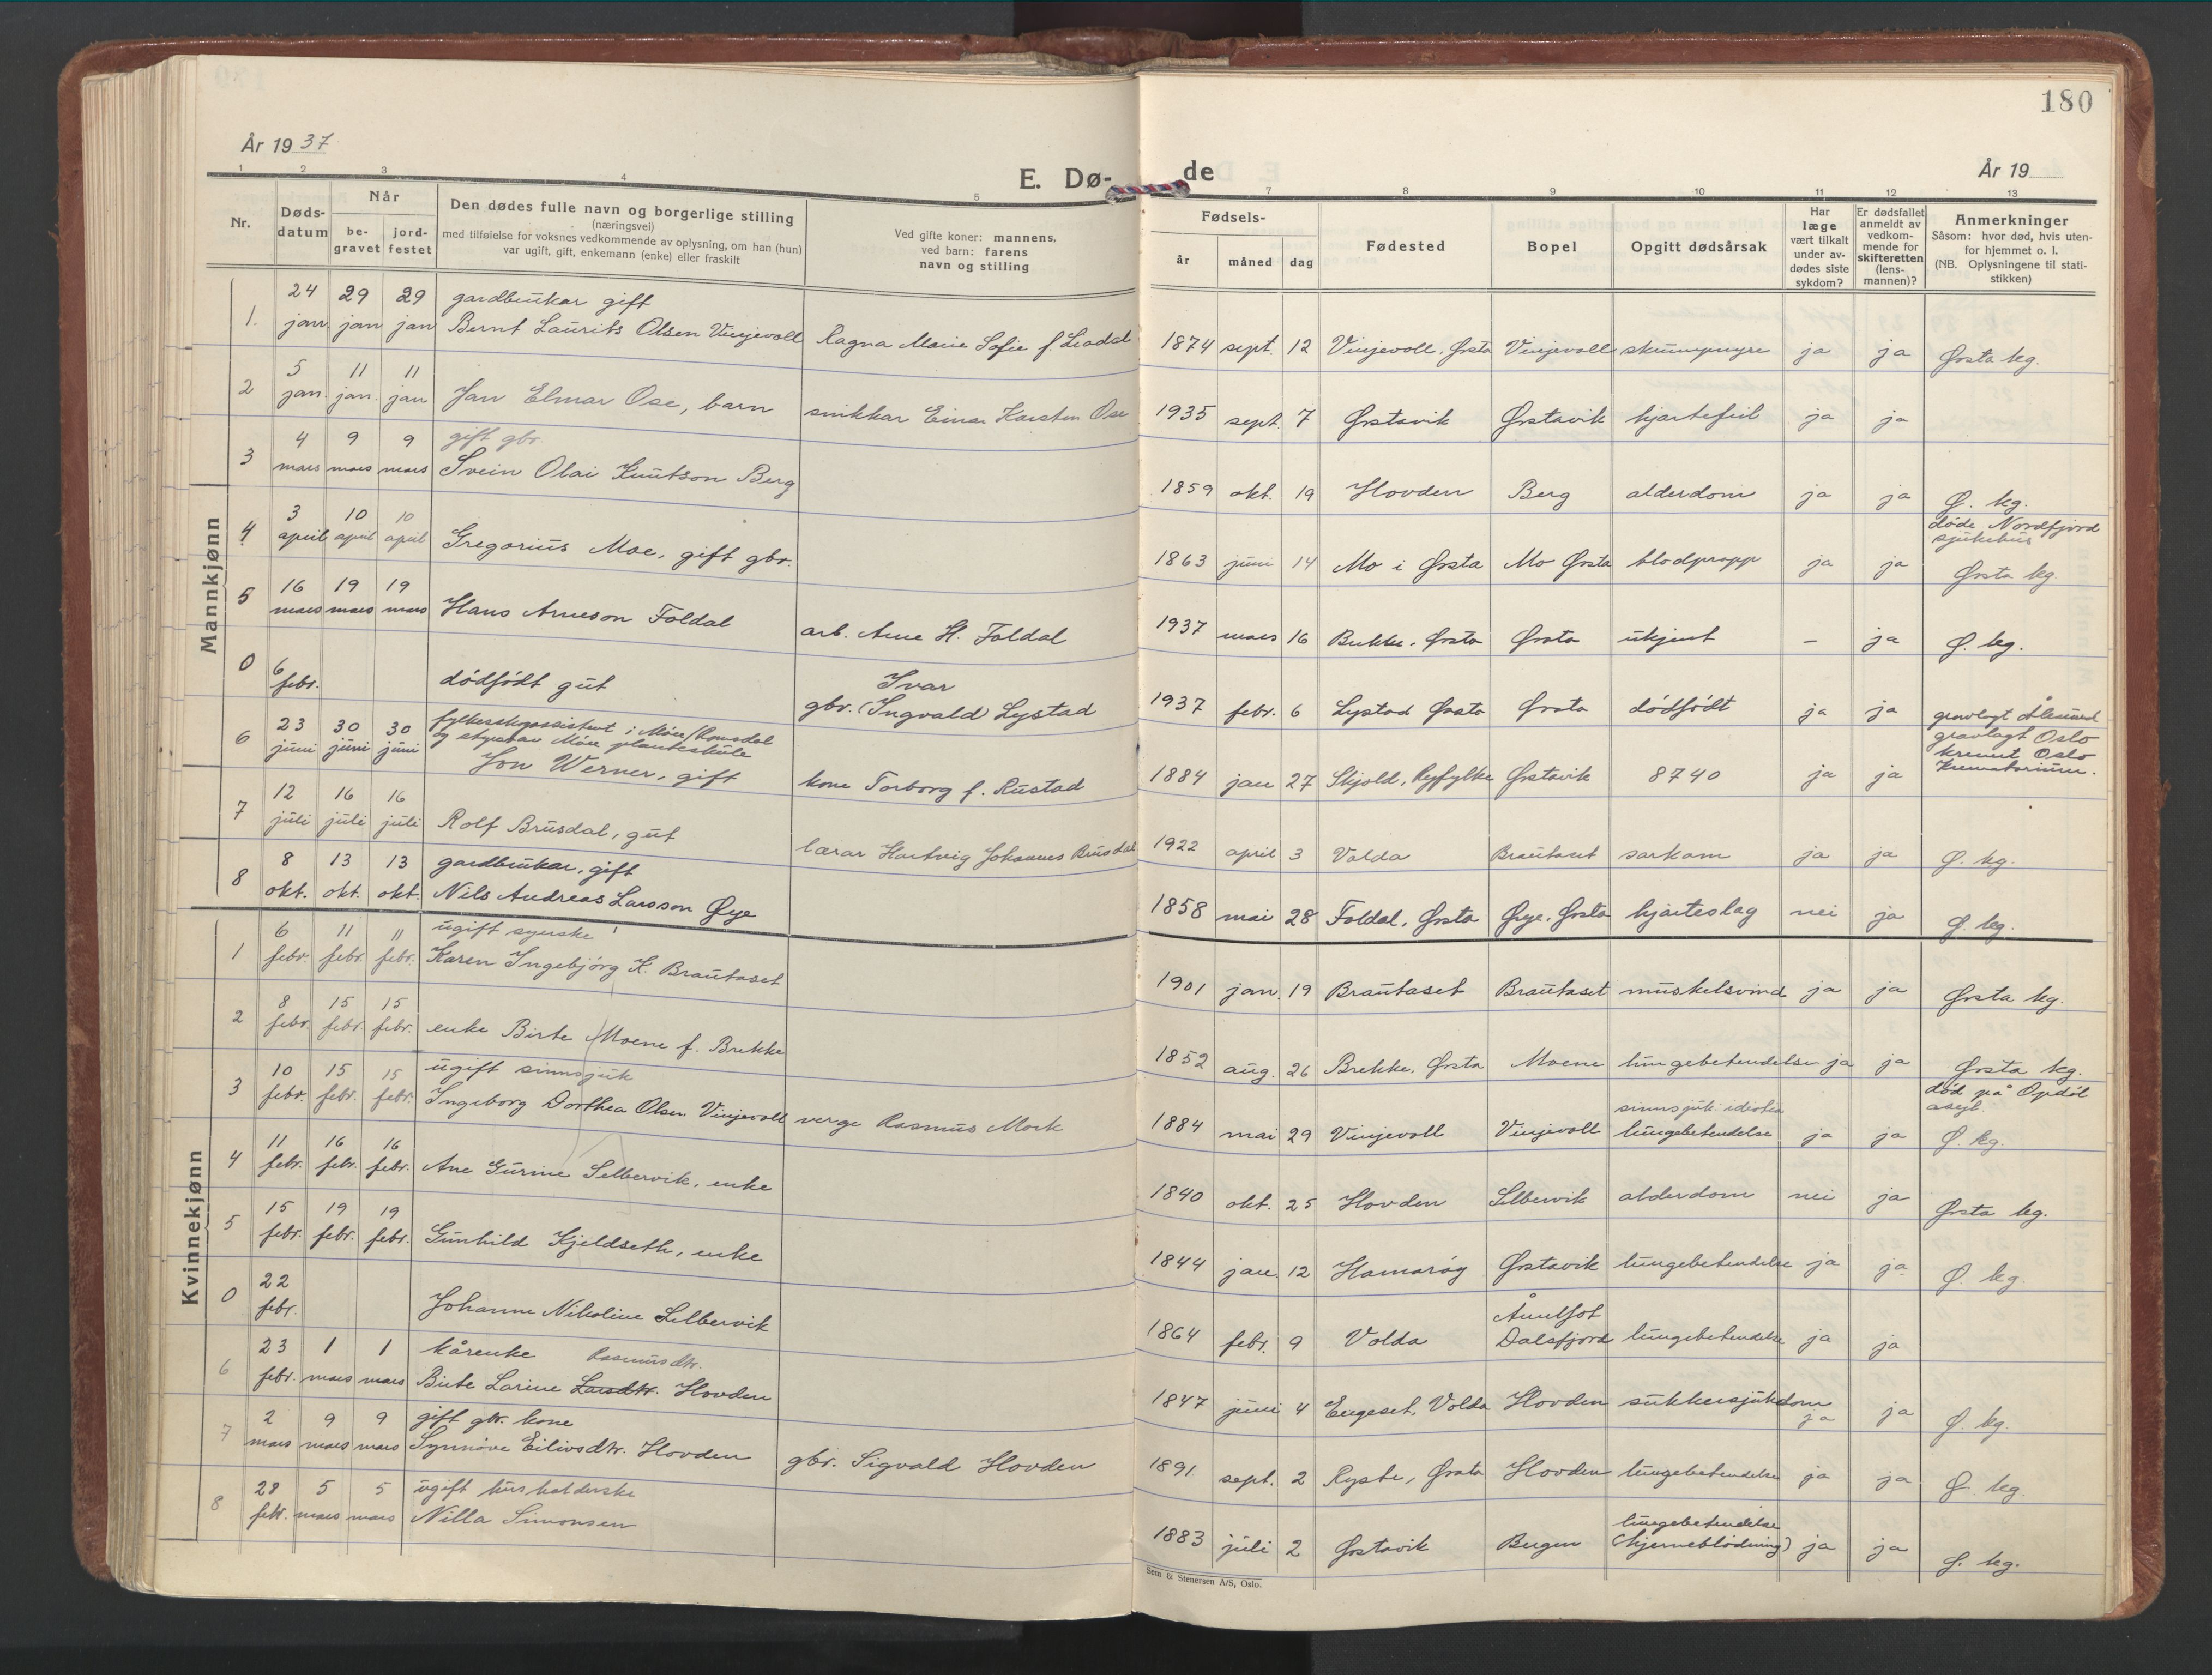 180
År 1937
E. Dø-
de
År 19
1 2 3 4 5 7 8 9 10 11 12 13
Nr.
Døds-
datum
Når
be-
gravet
jord-
festet
Den dødes fulle navn og borgerlige stilling
(næringsvei)
med tilføielse for voksnes vedkommende av oplysning, om han (hun)
var ugift, gift, enkemann (enke) eller fraskilt
Ved gifte koner: mannens,
ved barn: farens
navn og stilling
Fødsels-
år måned dag
Fødested
Bopel
Opgitt dødsårsak
Har
læge
vært tilkalt
under av-
dødes siste
sykdom?
Er dødsfallet
anmeldt av
vedkom-
mende for
skifteretten
(lens-
mannen)?
Anmerkninger
Såsom: hvor død, hvis uten-
for hjemmet o. l.
(NB. Oplysningene til stati-
stikken)
Mannkjønn
24 29 29 gardbrukar gift
1. jan. jan jan Bernt Laurits Olsen Vinjevoll Ragna Marie Sofie f. Liadal 1874 sept. 12 Vinjevoll, Ørsta Vinjevoll skrumpnyre ja ja Ørsta kg.
5 11 11
2 jan. jan. jan Jan Elmar Ose, barn snikkar Einar Karsten Ose 1935 sept. 7 Ørstavik Ørstavik hjartefeil ja ja
4 9 9 gift gbr.
3 mars mars mars Svein Olai Knutson Berg 1859 okt. 19 Hovden Berg alderdom ja ja Ø. kg.
3 10 10 døde Nordfjord
sjukehus
4 april april april Gregorius Moe, gift gbr. 1863 juni 14 Mo i Ørsta Mo Ørsta blodpropp ja ja Ørsta kg
16 19 19
5 mars mars mars Hans Arneson Foldal arb. Arne H. Foldal 1937 mars 16 Brekke, Ørsta Ørsta ukjent – ja Ø. kg.
Ivar
0 6 febr. dødfødt gut gbr. (Ingvald) Lystad 1937 febr. 6 Lystad Ørsta Ørsta dødfødt ja ja
23 30 30 fylkesskogassistent i Møre/Romsdal
og styrar av Møre planteskule
gravlagt Ålesund
gravlagt Oslo
kremert Oslo
Krematorium.
6 juni juni juni Jon Werner, gift kone Torborg f. Rustad 1884 jan 27 Skjold, Ryfylke Ørstavik 8740 ja ja
12 16 16
7 juli juli juli Rolf Brusdal, gut lærar Hartvig Johannes Brusdal 1922 april 3 Volda Brautaset sarkom ja ja Ø. kg.
8 13 13 gardbrukar, gift
8 okt. okt. okt. Nils Andreas Larsson Øye 1858 mai 28 Foldal, Ørsta Øye, Ørsta hjarteslag nei ja Ø. kg.
Kvinnekjønn
6 11 11 ugift syerske
1 febr. febr. febr. Karen Ingebjørg K. Brautaset 1901 jan. 19 Brautaset Brautaset muskelsvind ja ja Ørsta kg.
8 15 15
2 febr. febr. febr. enke Birte Moene f. Brekke 1852 aug. 26 Brekke, Ørsta Moene lungebetendelse ja ja Ørsta kg.
10 15 15 ugift sinnsjuk sinnsjuk idiotia død på Opdøl
asyl.
3 febr. febr. febr. Ingeborg Dorthea Olsen Vinjevoll verge Rasmus Mork 1884 mai 29 Vinjevoll Vinjevoll lungebetendelse ja ja Ø. kg.
11 16 16
4 febr. febr. febr. Ane Gurine Selbervik, enke 1840 okt. 25 Hovden Selbervik alderdom nei ja Ørsta kg.
15 19 19
5 febr. febr. febr. Gunhild Kjeldseth, enke 1844 jan. 12 Hamarøy Ørstavik lungebetendelse ja ja Ø. kg.
22
0 febr. Johanne Nikoline Selbervik 1864 febr. 9 Volda Åmelfot
Dalsfjord lungebetendelse ja ja
23 1 1 kårenke Rasmusdtr.
6 febr. mars mars Birte Larine Larsdtr. Hovden 1847 juni 4 Engeset, Volda Hovden sukkersjukdom ja ja Ø. kg.
2 9 9 gift gbr. kone
7 mars mars mars Synnøve Eilivsdtr. Hovden gbr. Sigvald Hovden 1891 sept. 2 Ryste, Ørsta Hovden lungebetendelse ja ja Ø. kg.
28 5 5 ugift husholderske
8 febr. mars mars Nilla Simonsen 1883 juli 2 Ørstavik Bergen lungebetendelse
(hjerneblødning) ja ja Ø. kg.
Sem & Stenersen A/S, Oslo.